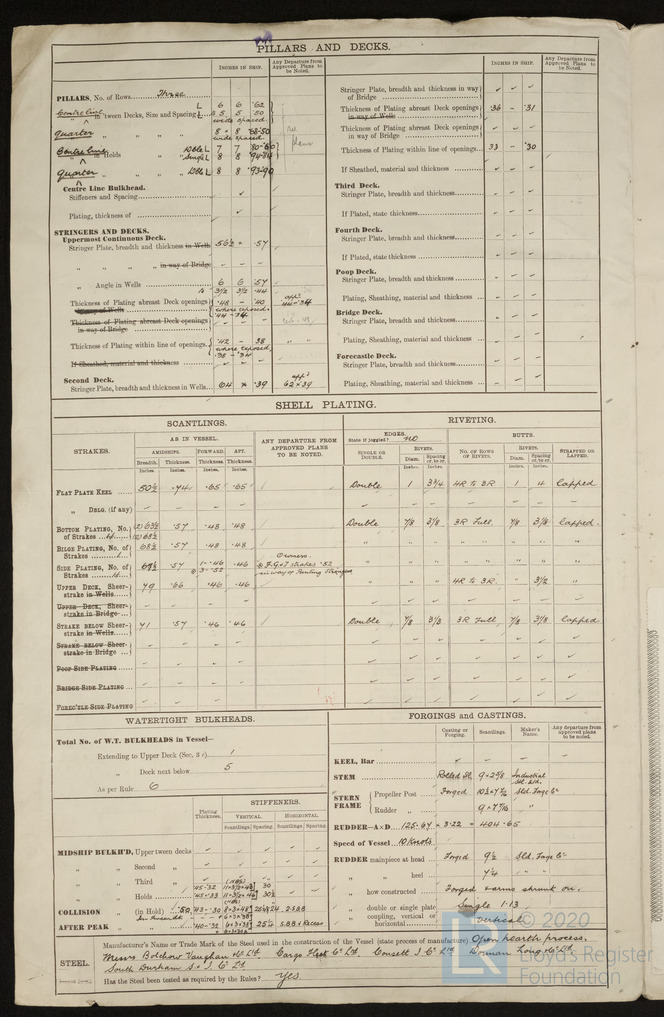 PILLARS AND DECKS.
INCHES IN SHIP. Any Departure from Approved Plans to be Noted.
PILLARS, No. of Rows Three
Centre line in 'tween Decks, Size and Spacing L 6 6 .62
5 5 .50
wide spaced.
quarter " " " " 8 × 8
wide spaced.
Centre line in Holds Dble L 7 7
" " Single L 8 8
see plans
quarter " " " Dble L 8 8
Centre Line Bulkhead.
Stiffeners and Spacing
Plating, thickness of
STRINGERS AND DECKS.
Uppermost Continuous Deck.
Stringer Plate, breadth and thickness in Wells 56½ × .57
" " " " in way of Bridge
" Angle in Wells 6 6 .57
3½ 3½ .44
Thickness of Plating abreast Deck openings .48 - .40
in way of Wells where exposed.
.44 - .34
Thickness of Plating abreast Deck openings
in way of Bridge
Thickness of Plating within line of openings .42 - .38
where exposed
.38 - .34
If Sheathed, material and thickness
Second Deck.
Stringer Plate, breadth and thickness in Wells 64 × .39 62 × 39
INCHES IN SHIP. Any Departure from Approved Plans to be Noted.
Stringer Plate, breadth and thickness in way of Bridge
Thickness of Plating abreast Deck openings in way of Wells .36 - .31
Thickness of Plating abreast Deck openings in way of Bridge
Thickness of Plating within line of openings 33 - .30
If Sheathed, material and thickness
Third Deck.
Stringer Plate, breadth and thickness
If Plated, state thickness
Fourth Deck.
Stringer Plate, breadth and thickness
If Plated, state thickness
Poop Deck.
Stringer Plate, breadth and thickness
Plating, Sheathing, material and thickness
Bridge Deck.
Stringer Plate, breadth and thickness
Plating, Sheathing, material and thickness
Forecastle Deck.
Stringer Plate, breadth and thickness
Plating, Sheathing, material and thickness
SHELL PLATING.
SCANTLINGS. RIVETING.
STRAKES. AS IN VESSEL. ANY DEPARTURE FROM APPROVED PLANS TO BE NOTED.
AMIDSHIPS. FORWARD. AFT.
Breadth. Thickness. Thickness. Thickness.
Inches. Inches. Inches. Inches.
EDGES. State if joggled? NO BUTTS.
SINGLE OR DOUBLE. RIVETS. Diam. Spacing cr. to cr. No. OF ROWS OF RIVETS. RIVETS. Diam. Spacing cr. to cr. STRAPPED OR LAPPED.
FLAT PLATE KEEL 50½ .74 .65 .65 Double 1 3¾ 4R to 3R 1 4 Lapped
" DBLG. (if any)
BOTTOM PLATING, No. of Strakes 4 (2) 63½ .57 .48 .48 Double 7/8 3 1/8 3R Full 7/8 3 1/8 Lapped.
(2) 68½
BILGE PLATING, No. of Strakes 1 68½ .57 .48 .48
SIDE PLATING, No. of Strakes 4 68½ .57 1 - .46 .46
3 - .52
Owners.
F.G & J strakes .52
in way of Panting Stringers
UPPER DECK, Sheer-strake in Wells 79 .66 .46 .46 " " " 4R to 3R " 3½ "
UPPER DECK, Sheer-strake in Bridge
STRAKE BELOW Sheer-strake in Wells 71 .57 .46 .46 Double 7/8 3 1/8 3R Full 7/8 3 1/8 Lapped
STRAKE BELOW Sheer-strake in Bridge
POOP SIDE PLATING
BRIDGE SIDE PLATING
FOREC'TLE SIDE PLATING
WATERTIGHT BULKHEADS.
Total No. of W.T. BULKHEADS in Vessel—
Extending to Upper Deck (Sec. 3 c) 1
" Deck next below 5
As per Rule 6
Plating Thickness. STIFFENERS.
VERTICAL. HORIZONTAL.
Scantlings. Spacing. Scantlings. Spacing
MIDSHIP BULKH'D, Upper tween decks
" " Second "
" " Third "
" " Holds 30
30½
COLLISION " (in Hold)
AFTER PEAK "
FORGINGS and CASTINGS.
Casting or Forging. Scantlings. Maker's Name. Any departure from approved plans to be noted.
KEEL, Bar
STEM Rolled Stl. 9 × 2 5/8 Industrial
STERN FRAME Propeller Post Forged 10½ × 7½ Std. Forge Co
Rudder " 9 × 7 "
RUDDER—A×D 125.67 × 3.22 = 404.65
Speed of Vessel 10 Knots
RUDDER mainpiece at head Forged 9½ Std. Forge Co
" " heel 7¼
" how constructed Forged & arms shrunk on.
" double or single plate Single 1.13
" coupling, vertical or horizontal vertical
STEEL. Manufacturer's Name or Trade Mark of the Steel used in the construction of the Vessel (state process of manufacture) Open hearth process.
Messrs Bolckow Vaughan & Co Ltd. Cargo Fleet Co Ltd. Consett I Co Ltd Dorman Long & Co Ltd.
South Durham S & I. Co Ltd.
Has the Steel been tested as required by the Rules? Yes.
© 2020
LR
Lloyd's Register
Foundation